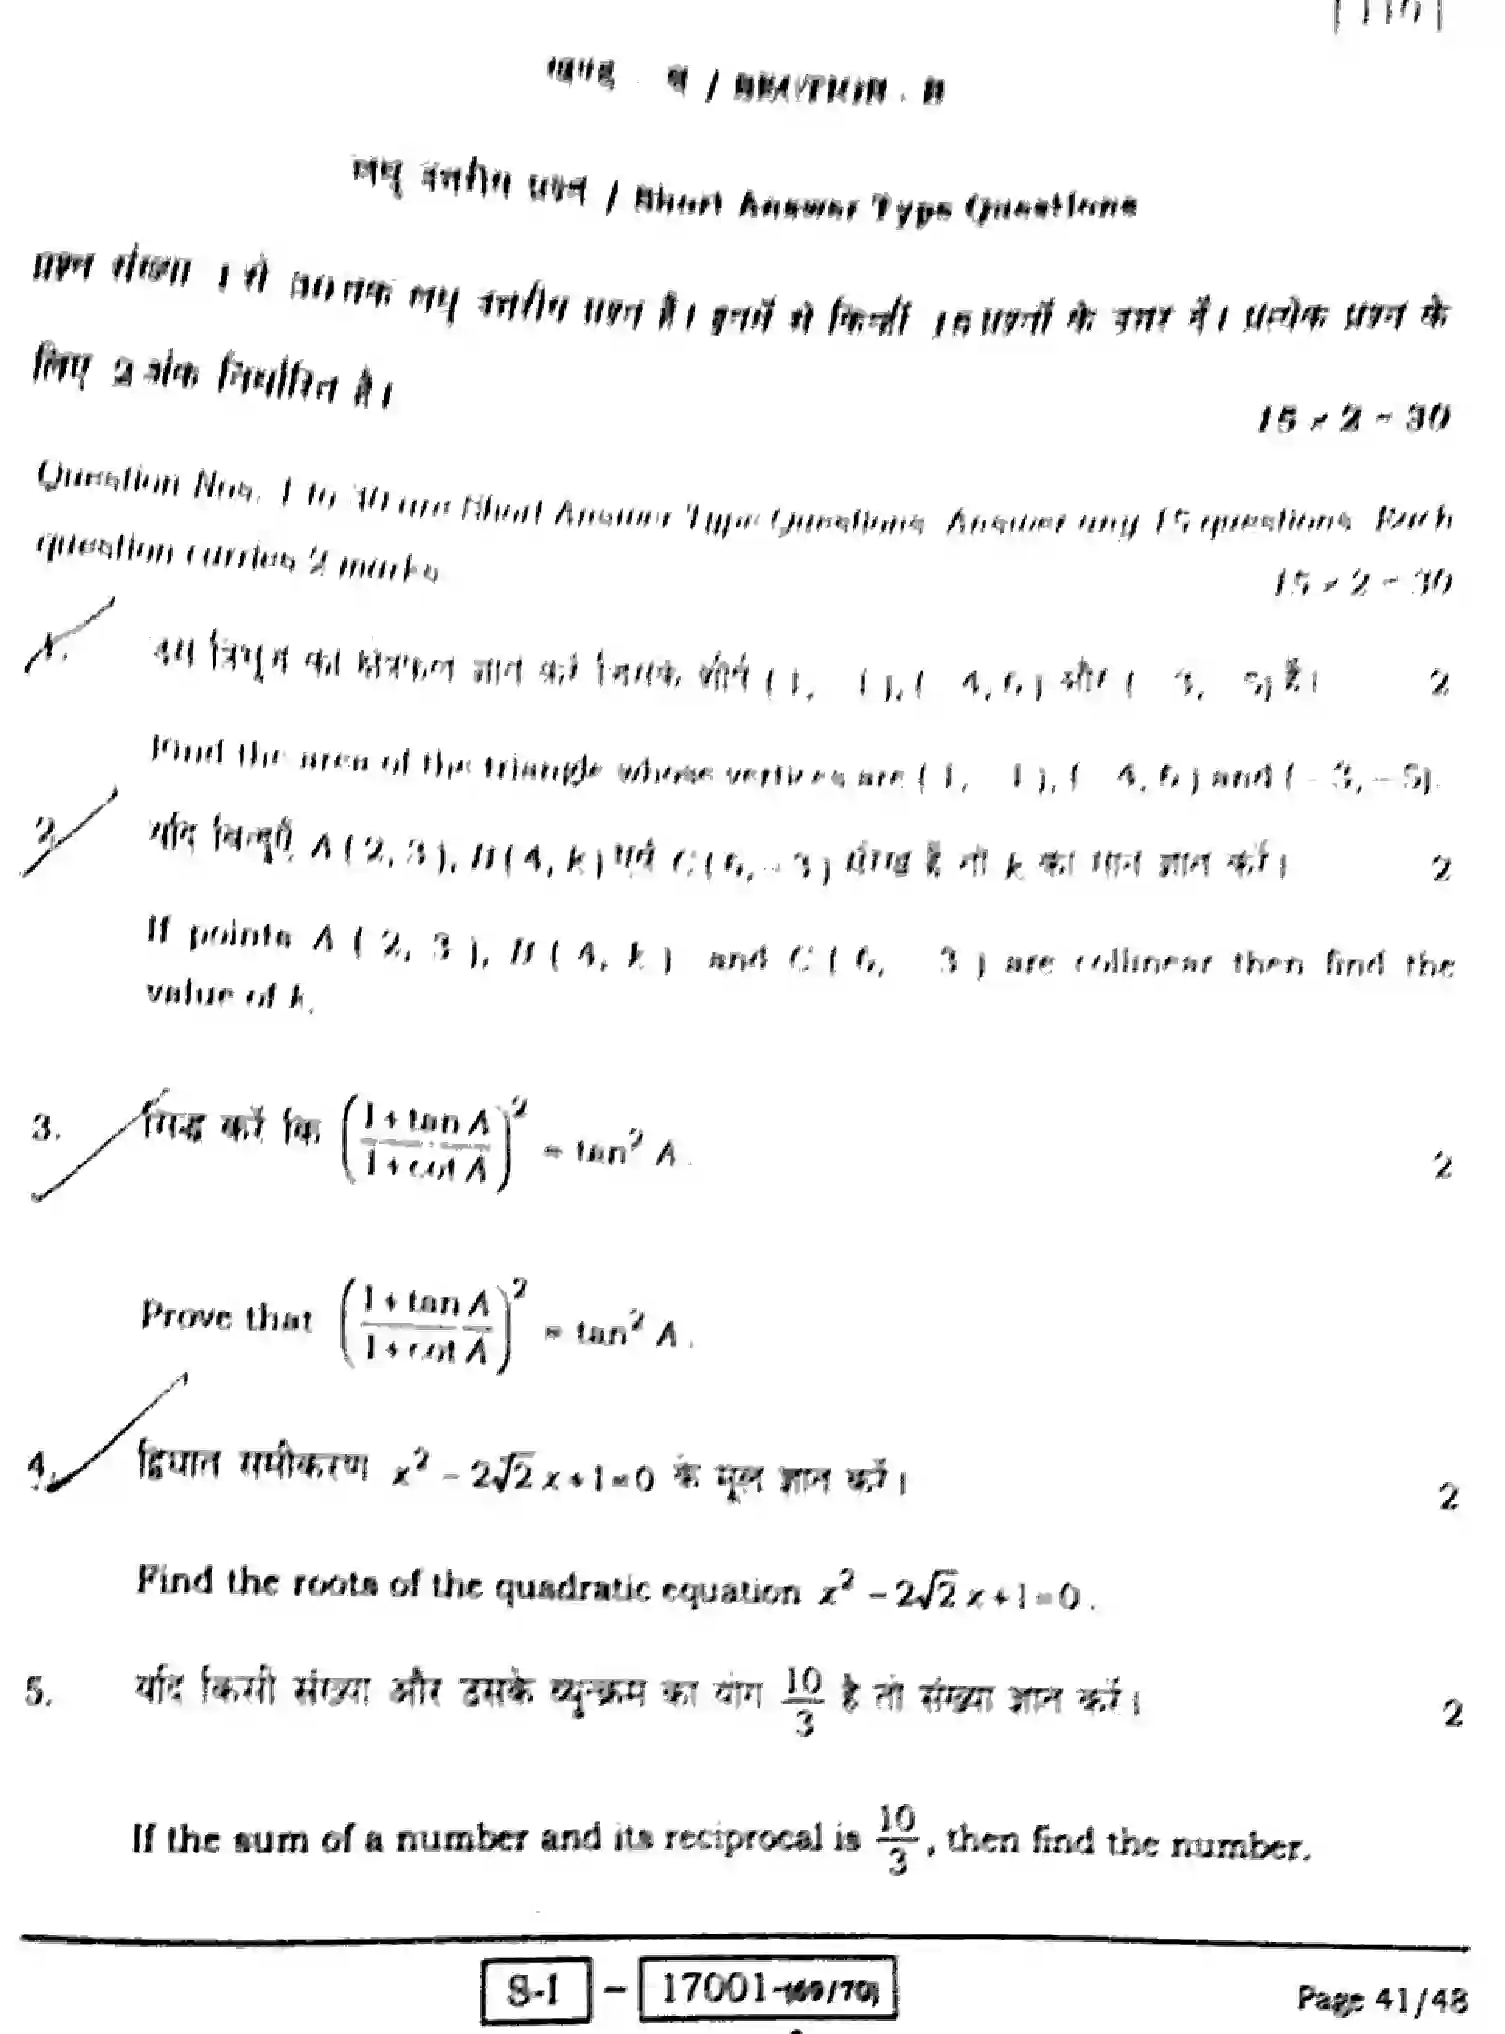 खण्ड - ब / SECTION - B
लघु उत्तरीय प्रश्न / Short Answer Type Questions
प्रश्न संख्या 1 से 30 तक लघु उत्तरीय प्रश्न हैं। इनमें से किन्हीं 15 प्रश्नों के उत्तर दें। प्रत्येक प्रश्न के
लिए 2 अंक निर्धारित है।
15 × 2 = 30
Question Nos. 1 to 30 are Short Answer Type Questions. Answer any 15 questions. Each
question carries 2 marks.
15 × 2 = 30
1. उस त्रिभुज का क्षेत्रफल ज्ञात करें जिसके शीर्ष ( 1, - 1 ), ( - 4, 6 ) और ( - 3, - 5) हैं। 2
Find the area of the triangle whose vertices are ( 1, - 1 ), ( - 4, 6 ) and ( - 3, - 5).
2. यदि बिन्दुएँ A ( 2, 3 ), B ( 4, k ) एवं C ( 6, - 3 ) संरेख हैं तो k का मान ज्ञात करें। 2
If points A ( 2, 3 ), B ( 4, k ) and C ( 6, - 3 ) are collinear then find the
value of k.
3. सिद्ध करें कि ((1 + tan A)/(1 + cot A))² = tan² A . 2
Prove that ((1 + tan A)/(1 + cot A))² = tan² A .
4. द्विघात समीकरण x² - 2√2 x + 1 = 0 के मूल ज्ञात करें। 2
Find the roots of the quadratic equation x² - 2√2 x + 1 = 0 .
5. यदि किसी संख्या और उसके व्युत्क्रम का योग 10/3 है तो संख्या ज्ञात करें। 2
If the sum of a number and its reciprocal is 10/3 , then find the number.
S-I – 17001-(69/70) Page 41/48